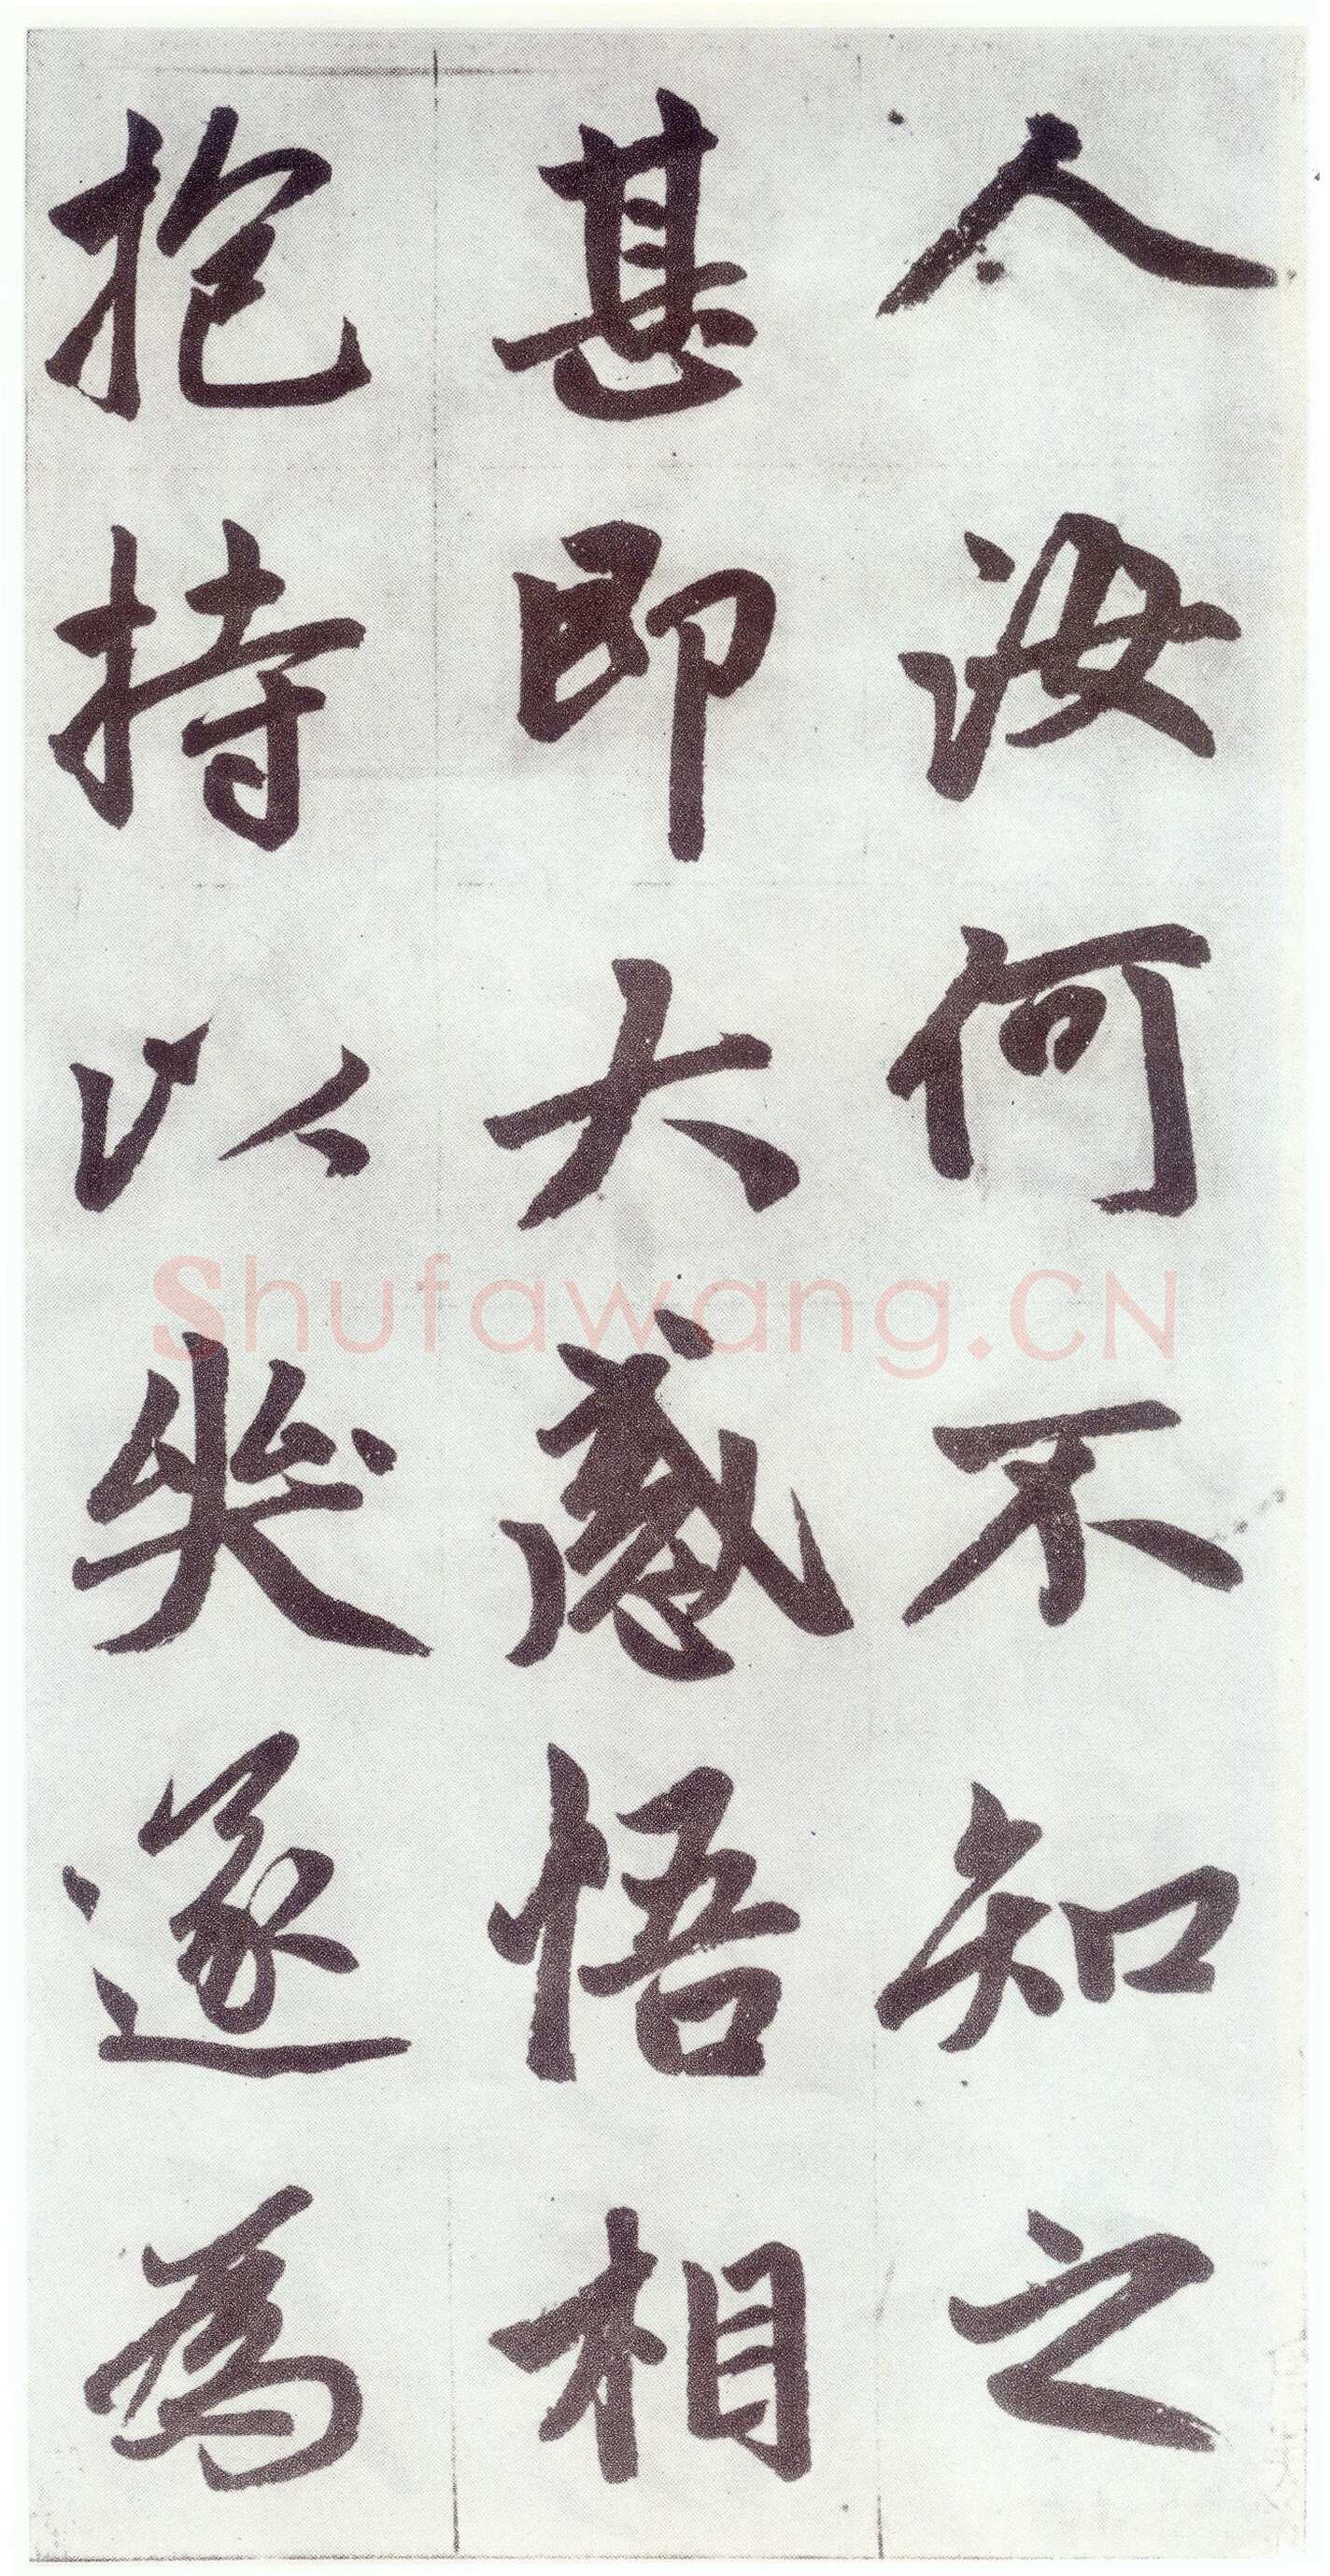 人汝何不知之
甚即大感悟相
抱持以哭遂為
Shufawang.CN